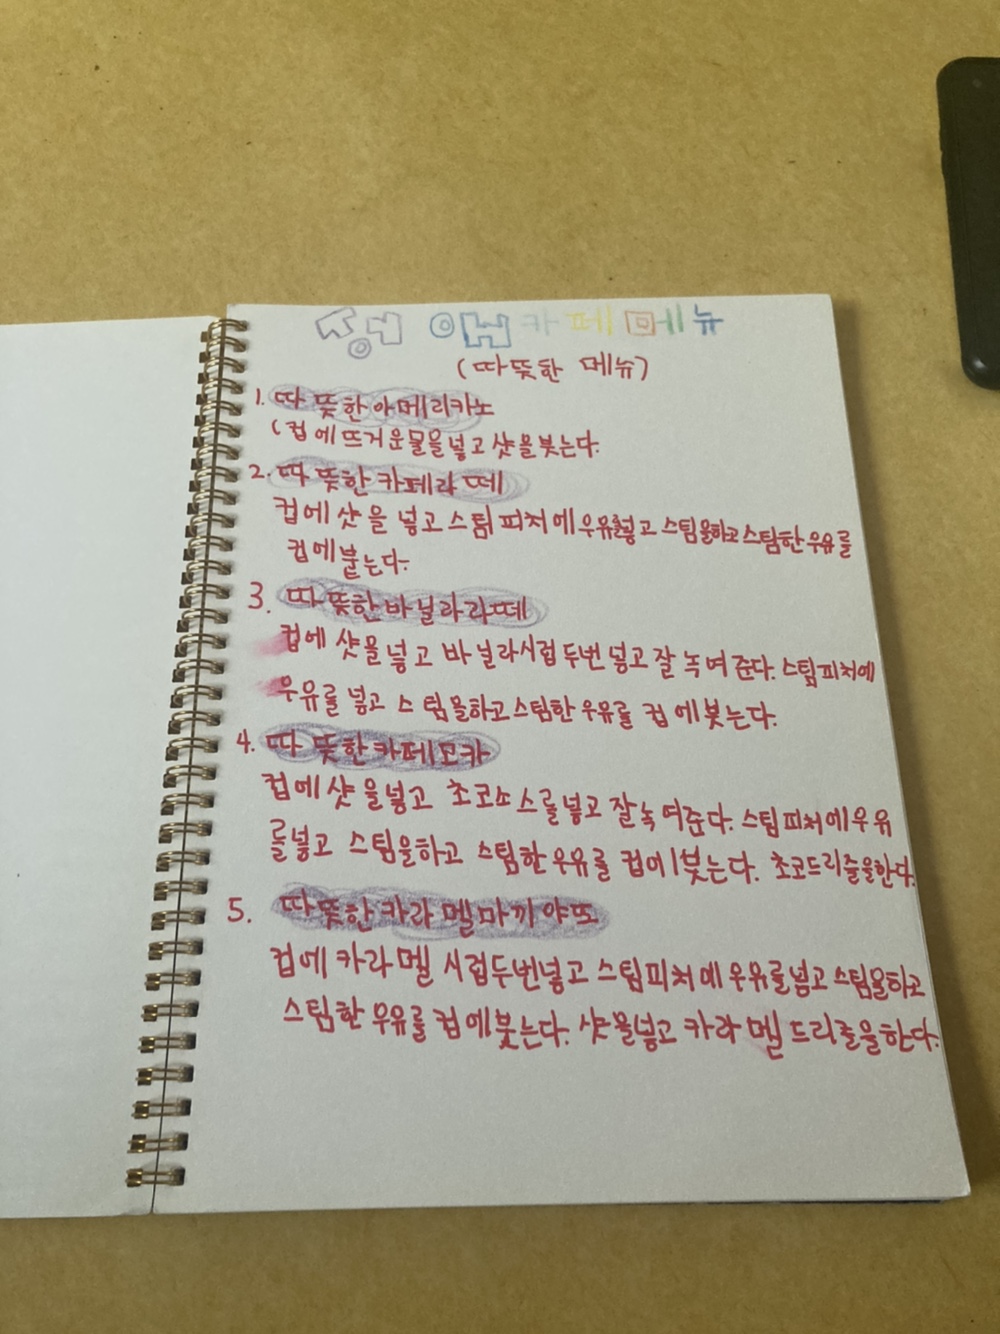 카페메뉴
(따뜻한 메뉴)
1. 따뜻한아메리카노
(컵에뜨거운물을넣고 샷을붓는다.
2. 따뜻한카페라떼
컵에샷을 넣고스팀피처에우유를넣고스팀을하고스팀한우유를
컵에붙는다.
3. 따뜻한바닐라라떼
컵에 샷을넣고 바닐라시럽두번넣고잘녹여준다. 스팀피처에
우유를 넣고 스팀을하고스팀한우유를 컵에붓는다.
4. 따뜻한카페모카
컵에샷을넣고 초코소스를넣고 잘녹여준다. 스팀피처에우유
를넣고 스팀을하고 스팀한우유를 컵에붗는다. 초코드리즐을한다.
5. 따뜻한카라멜마끼야또
컵에카라멜 시럽두번넣고 스팀피처에우유를넣고스팀을하고
스팀한 우유를 컵에붗는다. 샷을넣고 카라멜 드리즐을한다.